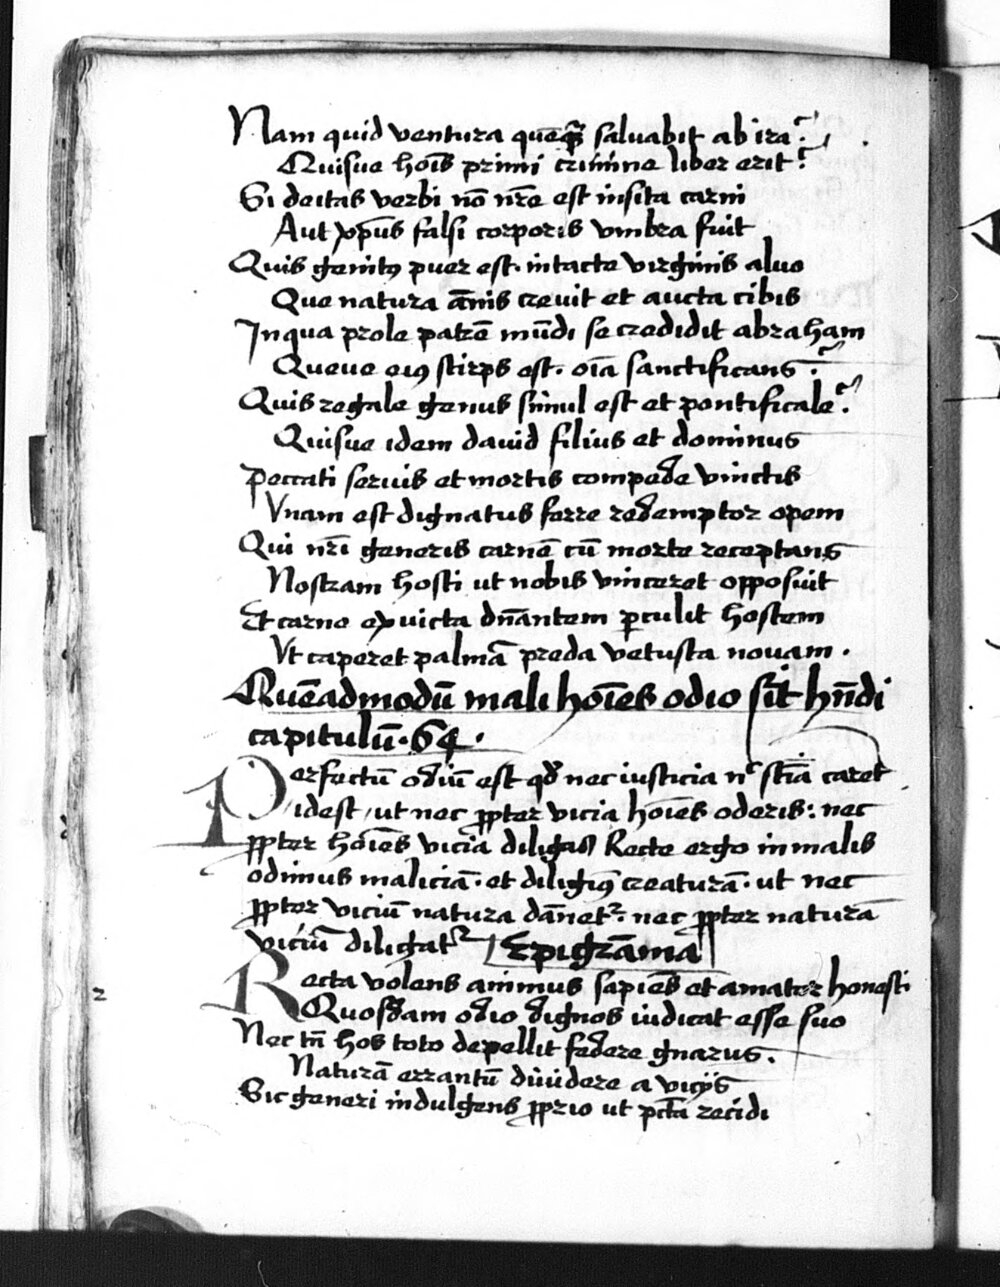 Nam quid ventura quēqꝫ̄ saluabit ab ira?
Quisue hoīs primi crimine liber erit?
Si deitas verbi nō nr̄e est insita carni
Aut xp̄us falsi corporis vmbra fuit
Quis genitꝰ puer est. intacte virginis aluo
Que natura ānis creuit et aucta cibis
In qua prole patrē mūdi se credidit abraham
Queue eiꝰ stirps est. oīa sanctificans?
Quis regale genus simul est et pontificale?
Quisue idem dauid filius et dominus
Peccati seruis et mortis compede vinctis
Vnam est dignatus ferre redemptor opem
Qui nr̄i generis carnē cū morte receptans
Nostram hosti ut nobis vinceret opposuit
Et carne ex victa dn̄antem ꝑculit hostem
Vt caperet palmā preda vetusta nouam.
Quēadmodū mali hoīes odio sīt hn̄di
capitulū. 64.
Perfectū odiū est qd̄ nec iusticia nec sciā caret
idest, ut nec ꝓpter vicia hoīes oderis: nec
ꝓpter hoīes vicia diligas Recte ergo in malis
odimus maliciā. et diligimꝰ creaturā. ut nec
ꝓpter viciū natura dānetᷣ. nec ꝓpter naturā
viciū diligatᷣ Epigrāma
Recta volens animus sapiēs et amator honesti
Quosdam odio dignos iudicat esse suo
Nec tn̄ hos toto depellit federe gnarus.
Naturā errantū diuidere a vicijs
Sic generi indulgens ꝓprio ut pctā recidi
2